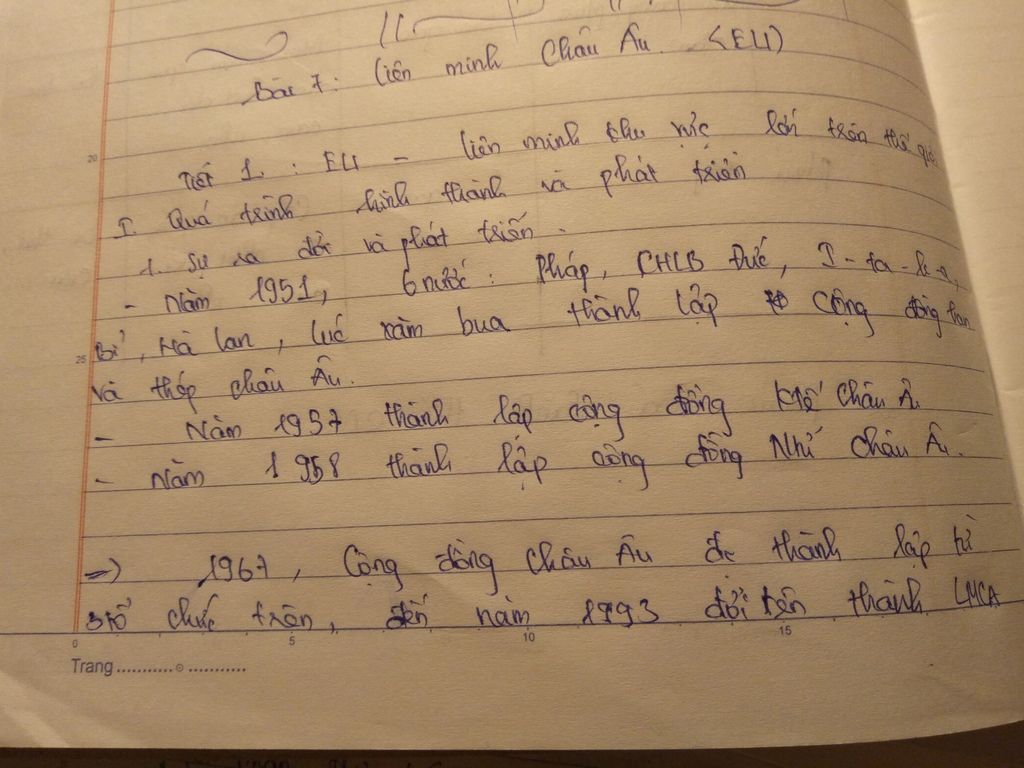 Bài 7: liên minh Châu Âu. (EU)
20
Tiết 1. : EU - liên minh khu vực lớn trên thế giới
I Quá trình hình thành và phát triển
1. Sự ra đời và phát triển.
- Năm 1951, 6 nước: Pháp, CHLB Đức, I-ta-li-a,
25
Bỉ, Hà lan, lúc xăm bua thành lập Cộng đồng than
và thép châu Âu.
- Năm 1957 thành lập cộng đồng Ktế Châu Âu
- Năm 1958 thành lập cộng đồng Nhỉ Châu Âu.
=> 1967, Cộng đồng Châu Âu đc thành lập từ
3 tổ chức trên, đến năm 1993 đổi tên thành LMCA
0 5 10 15
Trang ..........o..........